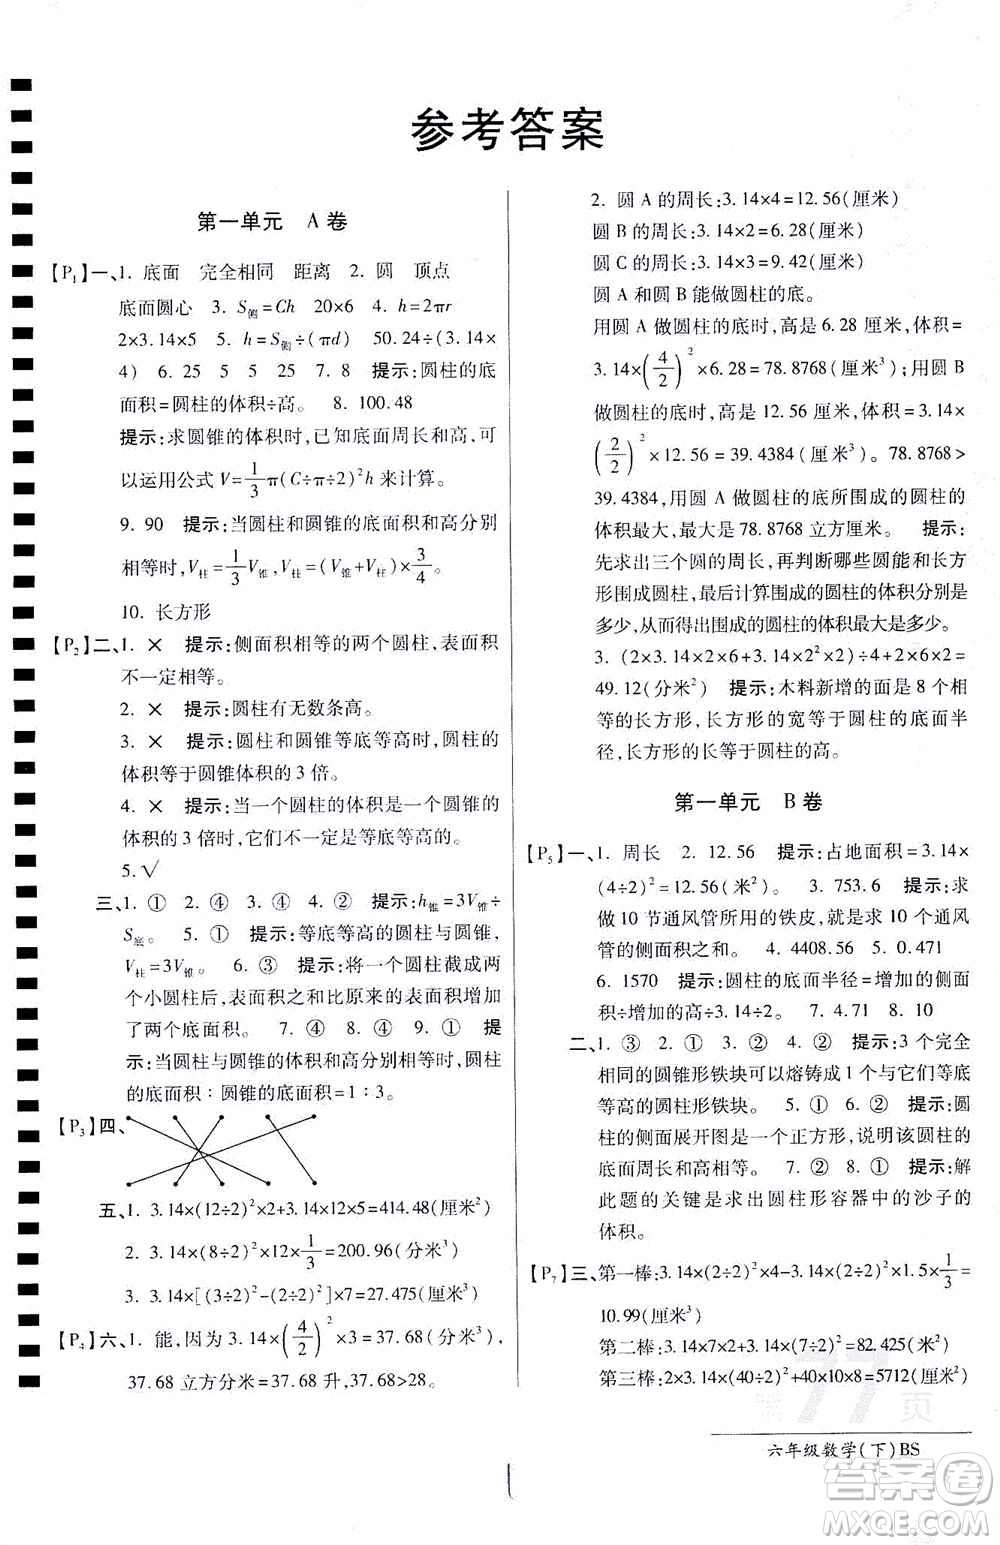 参考答案
第一单元 A 卷
【P₁】一、1. 底面 完全相同 距离 2. 圆 顶点
底面圆心 3. S侧=Ch 20×6 4. h=2πr
2×3.14×5 5. h=S侧÷(πd) 50.24÷(3.14×
4) 6. 25 5 5 25 7. 8 提示:圆柱的底
面积=圆柱的体积÷高。 8. 100.48
提示:求圆锥的体积时,已知底面周长和高,可
以运用公式 V=1/3π(C÷π÷2)²h 来计算。
9. 90 提示:当圆柱和圆锥的底面积和高分别
相等时,V柱=1/3V锥,V柱=(V锥+V柱)×3/4。
10. 长方形
【P₂】二、1. × 提示:侧面积相等的两个圆柱,表面积
不一定相等。
2. × 提示:圆柱有无数条高。
3. × 提示:圆柱和圆锥等底等高时,圆柱的
体积等于圆锥体积的 3 倍。
4. × 提示:当一个圆柱的体积是一个圆锥
体积的 3 倍时,它们不一定是等底等高的。
5.√
三、1. ① 2. ④ 3. ④ 4. ④ 提示:h锥=3V锥÷
S底。 5. ① 提示:等底等高的圆柱与圆锥,
V柱=3V锥。 6. ③ 提示:将一个圆柱截成两
个小圆柱后,表面积之和比原来的表面积增加
了两个底面积。 7. ④ 8. ④ 9. ① 提
示:当圆柱与圆锥的体积和高分别相等时,圆柱
的底面积∶圆锥的底面积=1∶3。
【P₃】四、
五、1. 3.14×(12÷2)²×2+3.14×12×5=414.48(厘米²)
2. 3.14×(8÷2)²×12×1/3=200.96(分米³)
3. 3.14×[(3÷2)²-(2÷2)²]×7=27.475(厘米³)
【P₄】六、1. 能,因为 3.14×(4/2)²×3=37.68(分米³),
37.68 立方分米=37.68 升,37.68>28。
2. 圆 A 的周长:3.14×4=12.56(厘米)
圆 B 的周长:3.14×2=6.28(厘米)
圆 C 的周长:3.14×3=9.42(厘米)
圆 A 和圆 B 能做圆柱的底。
用圆 A 做圆柱的底时,高是 6.28 厘米,体积=
3.14×(4/2)²×6.28=78.8768(厘米³);用圆 B
做圆柱的底时,高是 12.56 厘米,体积=3.14×
(2/2)²×12.56=39.4384(厘米³)。78.8768>
39.4384,用圆 A 做圆柱的底所围成的圆柱的
体积最大,最大是 78.8768 立方厘米。 提示:
先求出三个圆的周长,再判断哪些圆能和长方
形围成圆柱,最后计算围成的圆柱的体积分别是
多少,从而得出围成的圆柱的体积最大是多少。
3. (2×3.14×2×6+3.14×2²×2)÷(8×6×2)=
49.12(分米²) 提示:木料新增的面是 8 个相
等的长方形,长方形的宽等于圆柱的底面半
径,长方形的长等于圆柱的高。
第一单元 B 卷
【P₅】一、1. 周长 2. 12.56 提示:占地面积=3.14×
(4÷2)²=12.56(米²) 3. 753.6 提示:求
做 10 节通风管所用的铁皮,就是求 10 个通风
管的侧面积之和。 4. 4408.56 5. 0.471
6. 1570 提示:圆柱的底面半径=增加的侧面
积÷增加的高÷3.14÷2。 7. 4.71 8. 10
二、1. ③ 2. ④ 3. ② 4. ② 提示:3 个完全
相同的圆锥形铁块可以熔铸成 1 个与它们等底
等高的圆柱形铁块。 5. ① 6. ② 提示:圆
柱的侧面展开图是一个正方形,说明该圆柱的
底面周长和高相等。 7. ② 8. ① 提示:解
此题的关键是求出圆柱形容器中的沙子的
体积。
【P₇】三、第一棒:3.14×(2÷2)²×4-3.14×(2÷2)²×1.5×1/3=
10.99(厘米³)
第二棒:3.14×7×2+3.14×(7÷2)²=82.425(厘米²)
第三棒:2×3.14×(40÷2)²+40×10×8=5712(厘米²)
77页
六年级数学(下)BS
答案卷
MXQE.COM